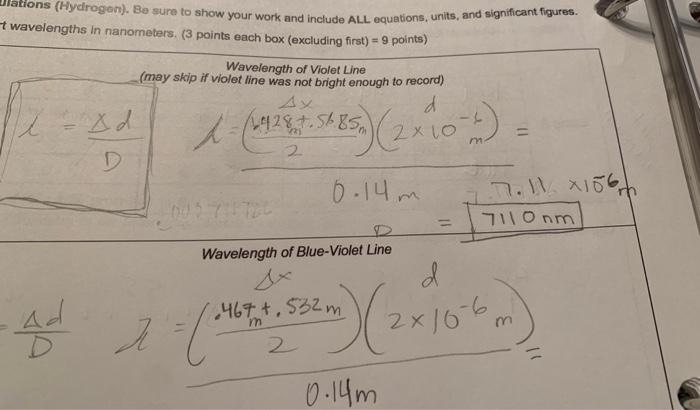 ulations (Hydrogen). Be sure to show your work and include ALL equations, units, and significant figures.
t wavelengths in nanometers. (3 points each box (excluding first) = 9 points)
Wavelength of Violet Line
(may skip if violet line was not bright enough to record)
Δx d
λ = Δd / D
λ = (.428m + .5685m / 2)(2×10⁻⁶ m) / 0.14m =
7.11 ×10⁻⁶m
= 7110nm
D
Wavelength of Blue-Violet Line
Δx d
= Δd / D
λ = (.467m + .532m / 2)(2×10⁻⁶ m) / 0.14m =